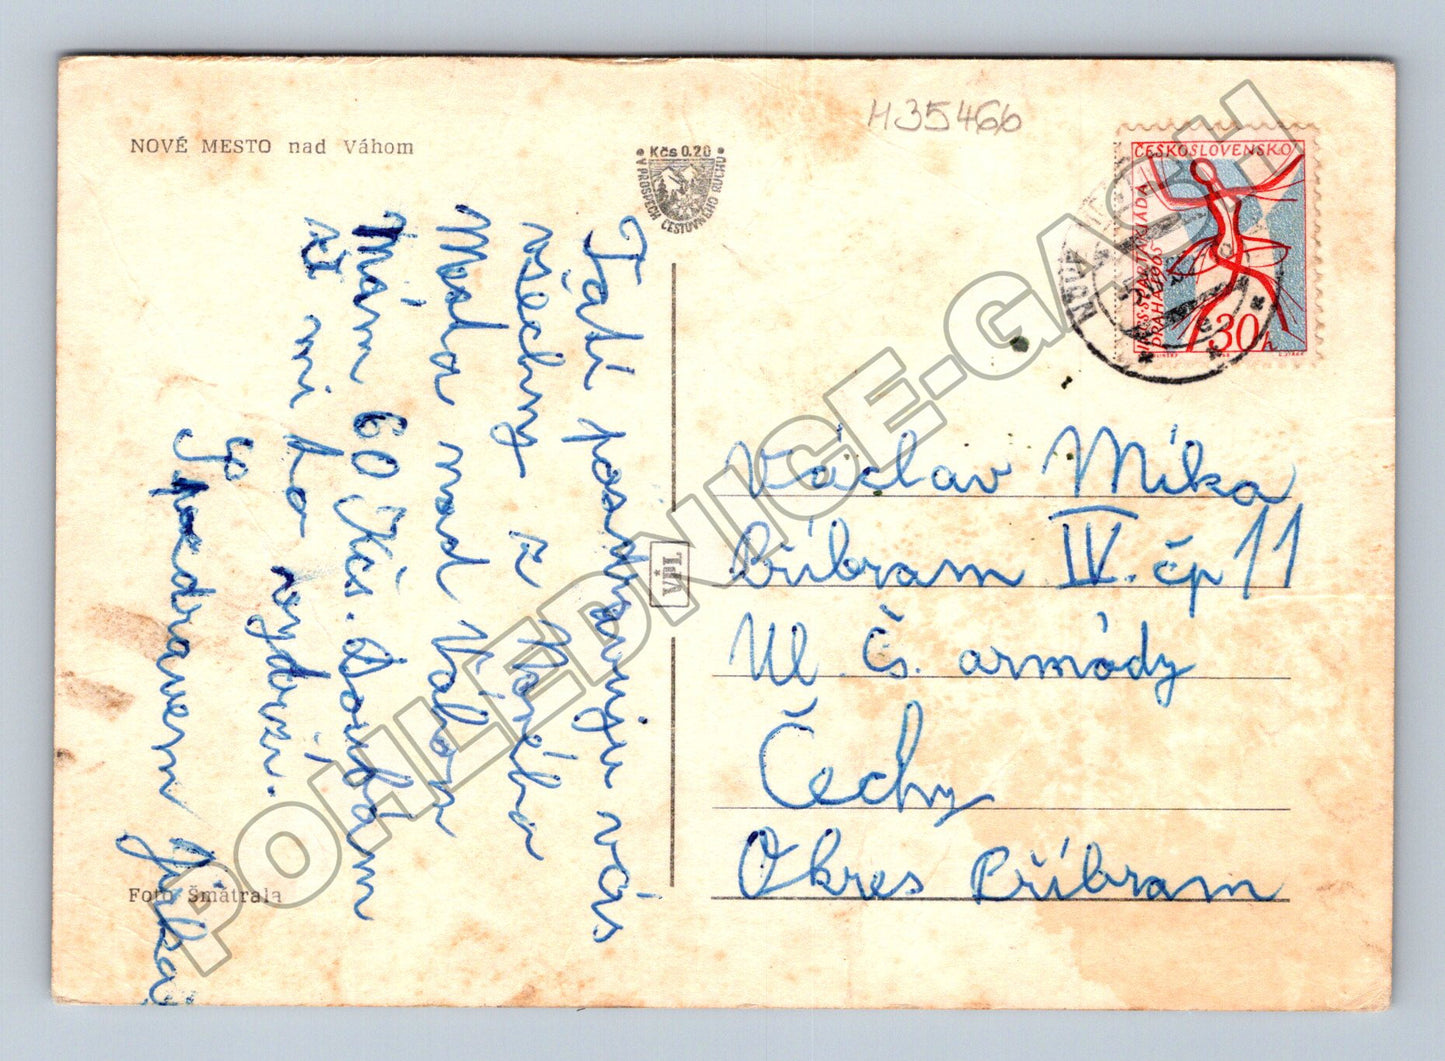 NOVÉ MESTO nad Váhom
• Kčs 0.20 •
V PROSPECH CESTOVNÉHO RUCHU
H35466
ČESKOSLOVENSKO
PRAHA 1965
30
Taťi pozdravuju vás
všechny z Nového
Mesta nad Váhom
Mám 60 Kčs. Doufám
že mi to vydrží.
S pozdravem Jirka
VPL
Václav Míka
Příbram IV. čp 11
Ul. Čs. armády
Čechy
Okres Příbram
Foto Šmátrala
POHLEDNICE-GASH